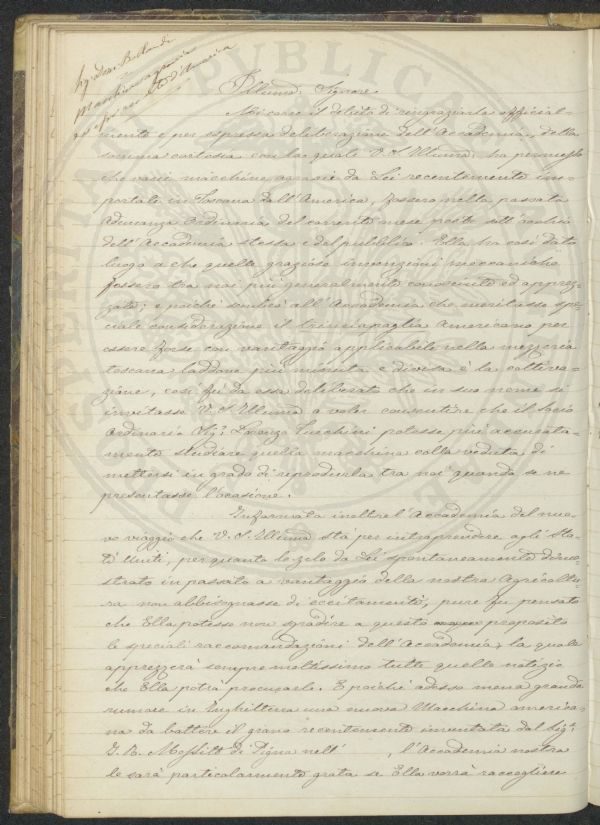 Macchine agrarie
Illmo. Signore.
Mi corre il debito di ringraziarla official-
mente e per espressa deliberazione dell'Accademia, della
somma cortesia con la quale V. S. Illuma. ha permesso
che varie macchine agrarie da Lei recentemente im-
portate in Toscana dall'America, fossero nella passata
adunanza ordinaria del corrente mese poste sott'occhio
dell'Accademia stessa e del pubblico. Ella ha così dato
luogo a che quelle graziose invenzioni meccaniche
fossero tra noi più generalmente conosciute ed apprez-
zate; e poichè sembrò all'Accademia che meritasse spe-
ciale considerazione il trinciapaglia Americano per
essere forse con vantaggio applicabile nella mezzeria
toscana laddove più minuta e divisa è la coltiva-
zione, così fù da essa deliberato che in suo nome si
invitasse V. S. Illuma. a voler consentire che il Socio
Ordinario Sigr. Lorenzo Turchini potesse più accurata-
mente studiare quella macchina colla veduta di
mettersi in grado di riprodurla tra noi quando se ne
presentasse l'occasione.
Informata inoltre l'Accademia del nuo-
vo viaggio che V. S. Illuma. stà per intraprendere agli Sta-
ti Uniti, per quanto lo zelo da Lei spontaneamente dimo-
strato in passato a vantaggio della nostra Agricoltu-
ra non abbisognasse di eccitamenti, pure fu pensato
che Ella potesse non sgradire a questo proposito
le speciali raccomandazioni dell'Accademia, la quale
apprezzerà sempre moltissimo tutte quelle notizie
che Ella potrà procurarle. E poichè adesso mena grande
rumore in Inghilterra una nuova Macchina america-
na da battere il grano recentemente inventata dal Sigr.
G. B. di nell' , l'Accademia nostra
le sarà particolarmente grata se Ella vorrà raccogliere
PUBLICA